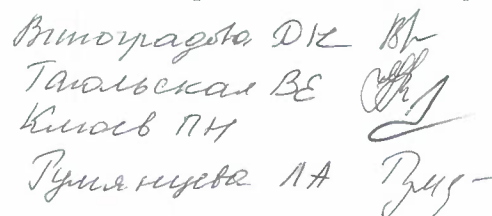 Виноградова ДН
Тагольская ВЕ
Клюев ПН
Румянцева ЛА